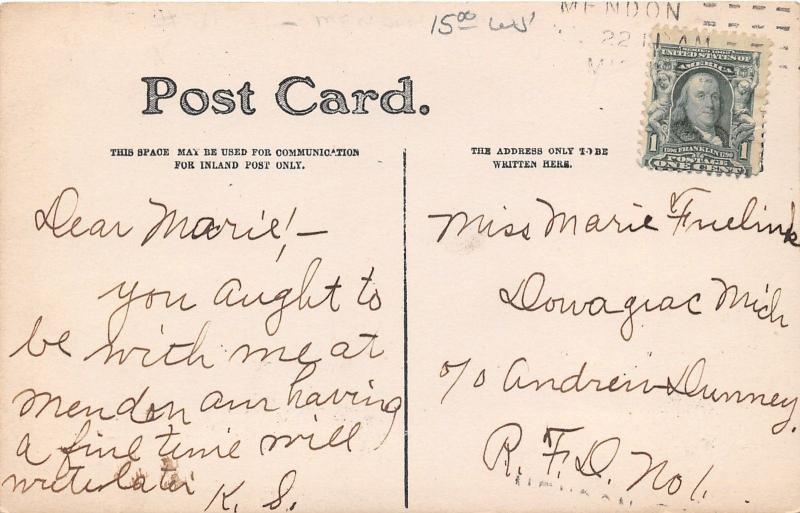 15.00
MENDON
22
AM
SERIES 1902
UNITED STATES OF
AMERICA
1 FRANKLIN 1
POSTAGE
ONE CENT
Post Card.
THIS SPACE MAY BE USED FOR COMMUNICATION
FOR INLAND POST ONLY.
THE ADDRESS ONLY TO BE
WRITTEN HERE.
Dear Marie!—
you aught to
be with me at
Mendon am having
a fine time will
write later
K. S.
Miss Marie
Dowagiac Mich
c/o Andrew Dunney,
R. F. D. No 1.